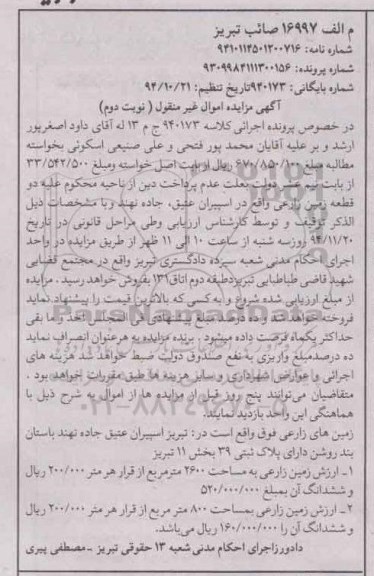 م الف ۱۶۹۹۷ صائب تبریز
شماره نامه: ۹۴۱۰۱۱۴۵۰۱۲۰۰۷۱۶
شماره پرونده: ۹۳۰۹۹۸۴۱۱۱۳۰۰۱۵۶
شماره بایگانی: ۹۴۰۱۷۳تاریخ تنظیم: ۹۴/۱۰/۲۱
آگهی مزایده اموال غیر منقول ( نوبت دوم)
در خصوص پرونده اجرائی کلاسه ۹۴۰۱۷۳ ج م ۱۳ له آقای داود اصغرپور
ارشد و بر علیه آقایان محمد پور فتحی و علی صنیعی اسکوئی بخواسته
مطالبه مبلغ ۶۷۰/۸۵۰/۱۰۰ ریال از بابت اصل خواسته ومبلغ ۳۳/۵۴۲/۵۰۰
از بابت نیم عشر دولت بعلت عدم پرداخت دین از ناحیه محکوم علیه دو
قطعه زمین زراعی واقع در اسپیران عتیق، جاده نهند و با مشخصات ذیل
الذکر توقیف و توسط کارشناس ارزیابی وطی مراحل قانونی در تاریخ
۹۴/۱۱/۲۰ روزسه شنبه از ساعت ۱۰ الی ۱۱ ظهر از طریق مزایده در واحد
اجرای احکام مدنی شعبه سیزده دادگستری تبریز واقع در مجتمع قضایی
شهید قاضی طباطبایی تبریز دطبقه دوم اتاق۱۳۱ بفروش خواهد رسید . مزایده
از مبلغ ارزیابی شده شروع و به کسی که بالاترین قیمت را پیشنهاد نماید
فروخته خواهد شد و ده درصد مبلغ پیشنهادی فی المجلس اخذ و ما بقی
حداکثر یکماه فرصت داده میشود . برنده مزایده به هرعنوان انصراف نماید
ده درصدمبلغ واریزی به نفع صندوق دولت ضبط خواهد شد هزینه های
اجرائی و عوارض شهرداری و سایر هزینه ها طبق مقررات خواهد بود .
متقاضیان می‌توانند پنج روز قبل از مزایده ها از اموال به شرح ذیل با
هماهنگی این واحد بازدید نمایند.
زمین های زارعی فوق واقع است در: تبریز اسپیران عتیق جاده نهند باستان
بند روشن دارای پلاک ثبتی ۳۹ بخش ۱۱ تبریز
۱- ارزش زمین زارعی به مساحت ۲۶۰۰ مترمربع از قرار هر متر ۲۰۰/۰۰۰ ریال
و ششدانگ آن بمبلغ ۵۲۰/۰۰۰/۰۰۰
۲- ارزش زمین زارعی بمساحت ۸۰۰ متر مربع از قرار هر متر ۲۰۰/۰۰۰ ریال
و ششدانگ آن را ۱۶۰/۰۰۰/۰۰۰ ریال می‌باشد.
دادورزاجرای احکام مدنی شعبه ۱۳ حقوقی تبریز - مصطفی پیری